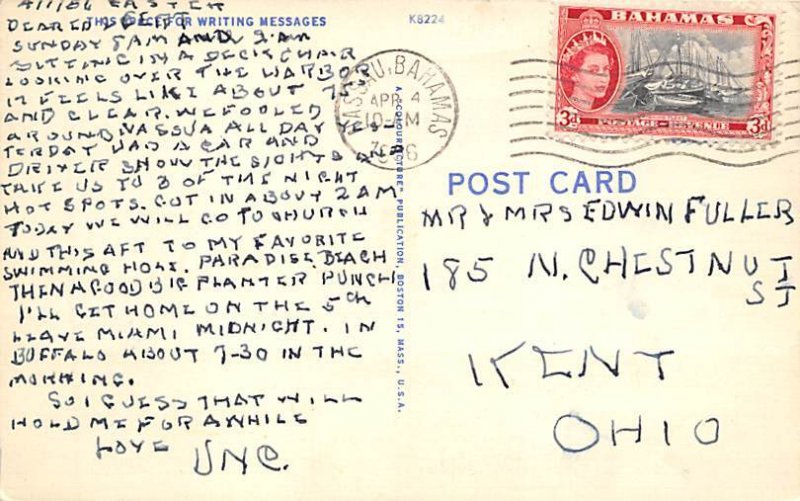 4/1/56 EASTER
THIS SPACE FOR WRITING MESSAGES
DEARED
SUNDAY 8AM AND I AM
SITTING IN A DECK CHAIR
LOOKING OVER THE HARBOR
IT FEELS LIKE ABOUT 75°
AND CLEAR. WE FOOLED
AROUND NASSUA ALL DAY YES-
TERDAY HAD A CAR AND
DRIVER SHOW THE SIGHTS AND
TAKE US TO 3 OF THE NIGHT
HOT SPOTS. GOT IN ABOUT 2AM
TODAY WE WILL GO TO CHURCH
AND THIS AFT TO MY FAVORITE
SWIMMING HOLE. PARADISE BEACH
THEN A GOOD BIG PLANTER PUNCH
I'LL GET HOME ON THE 5th
LEAVE MIAMI MIDNIGHT. IN
BUFFALO ABOUT 7-30 IN THE
MORNING.
SO I GUESS THAT WILL
HOLD ME FOR AWHILE
LOVE UNC.
K8224
A "COLOURPICTURE" PUBLICATION, BOSTON 15, MASS., U.S.A.
NASSAU, BAHAMAS
APR 4
10-AM
BAHAMAS
3d POSTAGE & REVENUE 3d
POST CARD
MR & MRS EDWIN FULLER
185 N. CHESTNUT
ST
KENT
OHIO